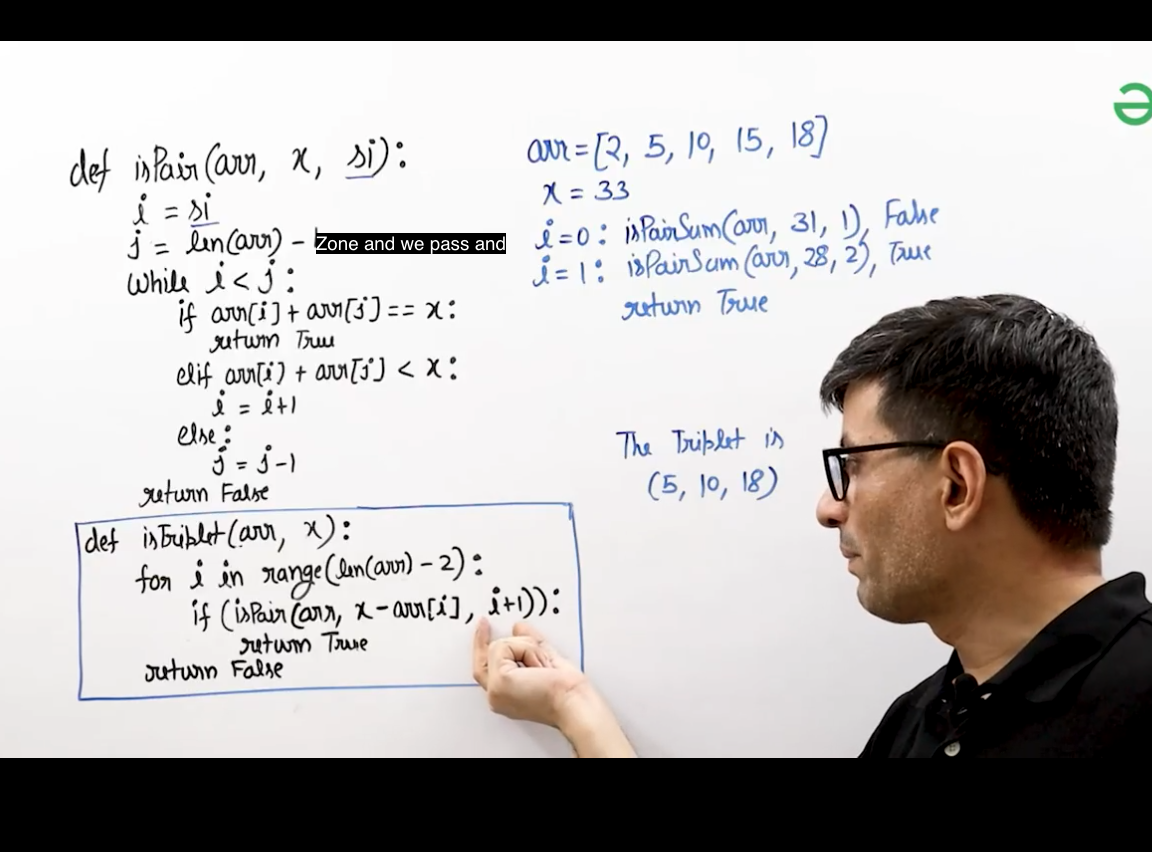 def isPair(arr, x, si):
i = si
j = len(arr) -
Zone and we pass and
while i < j:
if arr[i] + arr[j] == x:
return True
elif arr[i] + arr[j] < x:
i = i+1
else:
j = j-1
return False
def isTriplet(arr, x):
for i in range(len(arr) - 2):
if (isPair(arr, x - arr[i], i+1)):
return True
return False
arr = [2, 5, 10, 15, 18]
x = 33
i=0: isPairSum(arr, 31, 1), False
i=1: isPairSum(arr, 28, 2), True
return True
The Triplet is
(5, 10, 18)